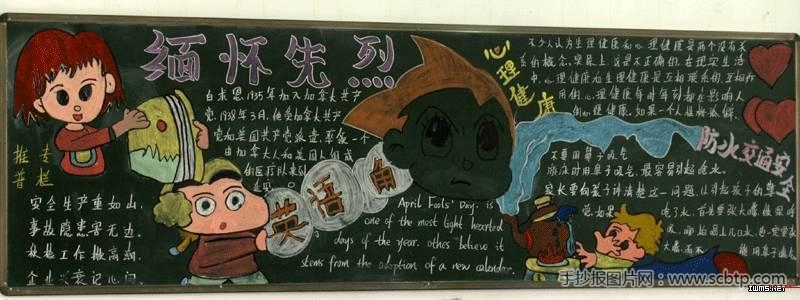 缅怀先烈
白求恩1935年加入加拿大共产
党,1938年3月,他受加拿大共产
党和美国共产党派遣,率领一个
由加拿大人和美国人组成
的医疗队来到
推普专栏
安全生产重如山,
事故隐患害无边.
扶植工作掀高潮,
企业兴衰记心间
英语角
April Fools' Day is
one of the most light hearted
days of the year. others believe it
stems from the adoption of a new calendar.
心理健康
不少人认为生理健康和心理健康是两个没有关
系的概念,实际上,这是不正确的.在现实生活
中,心理健康和生理健康是互相联系的,互相作
用的,心理健康每时每刻都在影响人
的生理健康.如果一个人
防火交通安全
不要用鼻子吸气
游泳时用鼻子吸气,最容易呛水.
家长要向孩子讲清楚这一问题,
手抄报图片网:www.scbtp.com
IWMS.NET